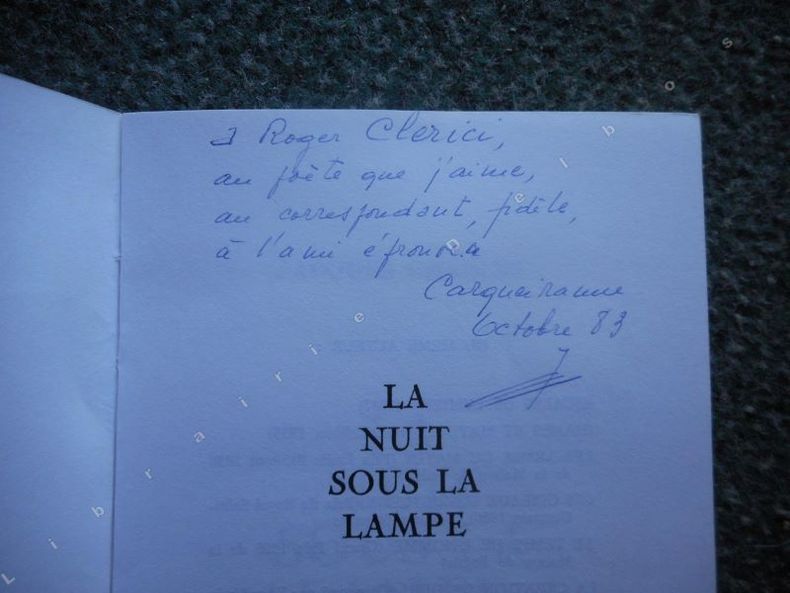 à Roger Clerici,
au poète que j'aime,
au correspondant, fidèle,
à l'ami éprouvé
Carqueiranne
Octobre 83
LA
NUIT
SOUS LA
LAMPE
Librairie